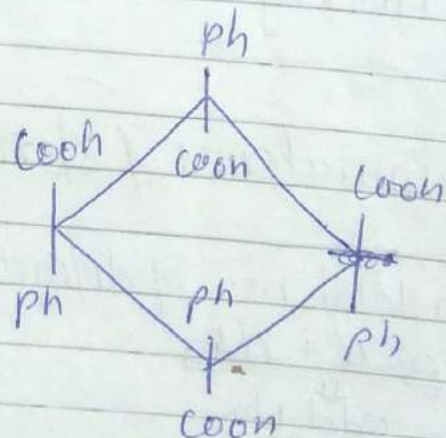 ph
Cooh
coon
Coon
ph
ph
ph
coon